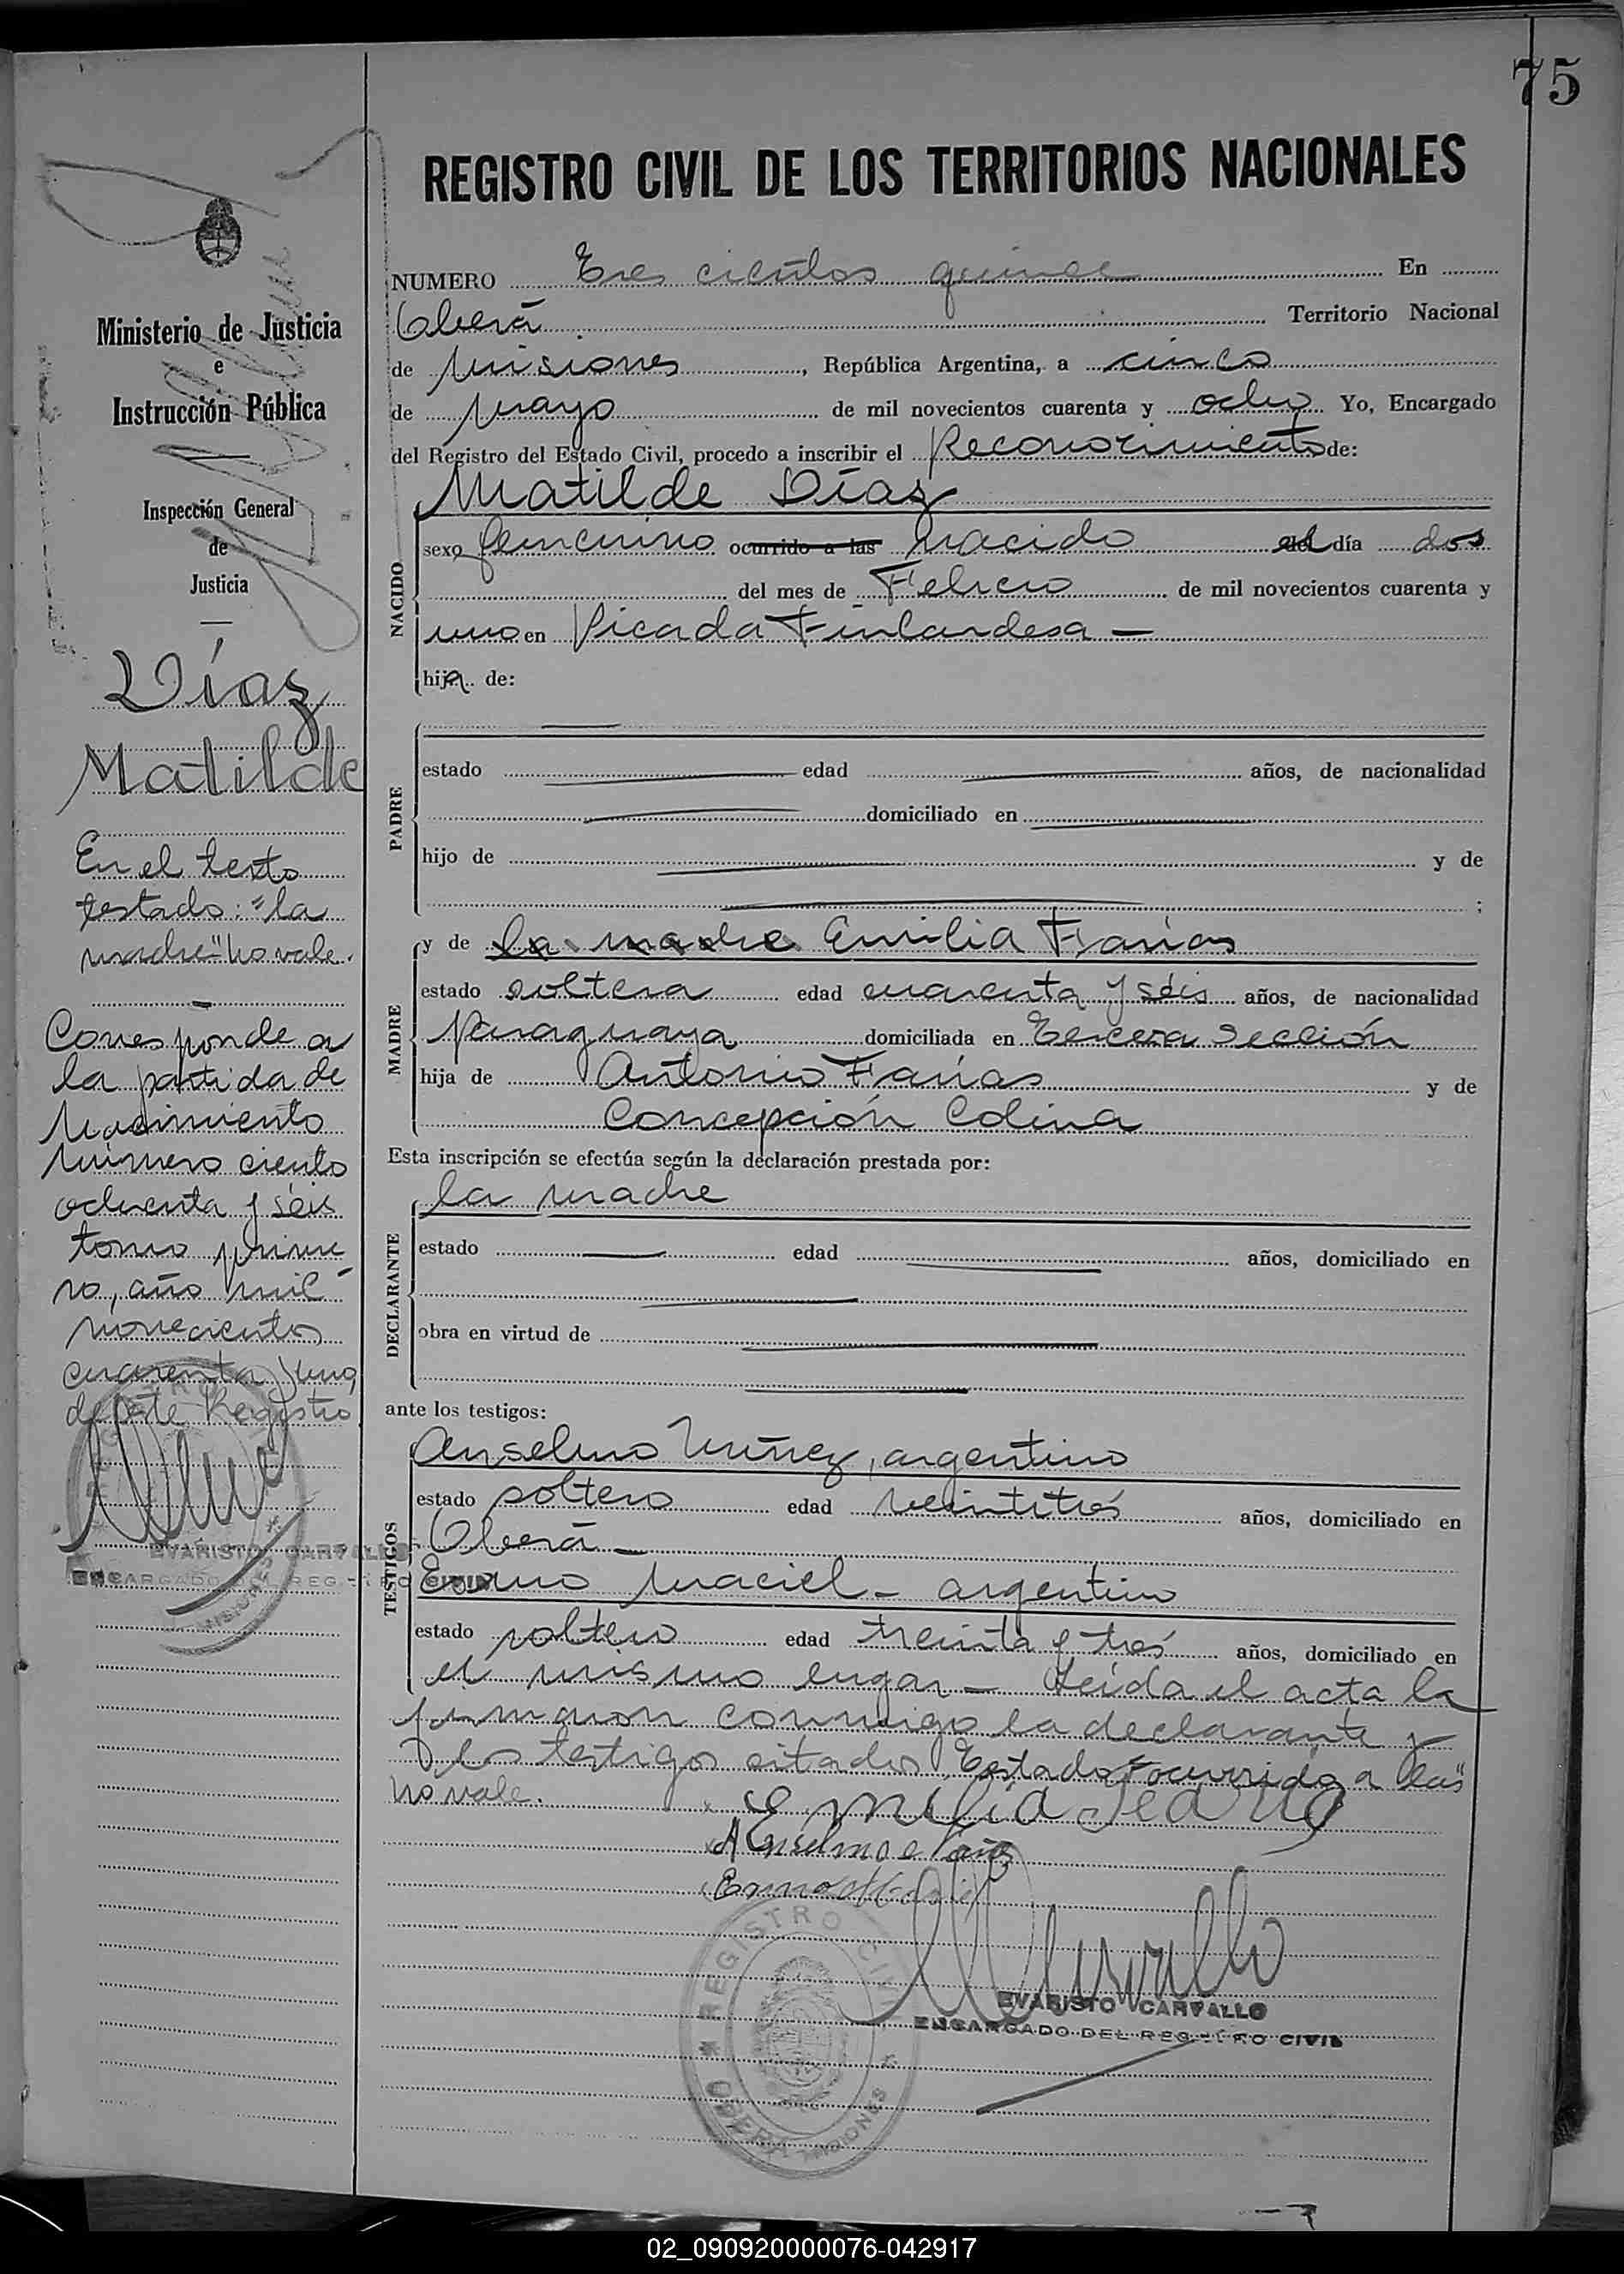 75
REGISTRO CIVIL DE LOS TERRITORIOS NACIONALES
Ministerio de Justicia
e
Instrucción Pública
Inspección General
de
Justicia
Díaz
Matilde
En el texto
testado: "la
madre" no vale.
Corresponde a
la partida de
Nacimiento
Número ciento
ochenta y séis
tomo prime
ro, año mil
novecientos
cuarenta y uno,
de éste Registro
EVARISTO CARVALLO
ENCARGADO DEL REGISTRO CIVIL
NUMERO Tres cientos quince En
Oberá Territorio Nacional
de Misiones, República Argentina, a cinco
de Mayo de mil novecientos cuarenta y ocho Yo, Encargado
del Registro del Estado Civil, procedo a inscribir el Reconocimiento de:
NACIDO
Matilde Díaz
sexo femenino ocurrido a las nacido el día dos
del mes de Febrero de mil novecientos cuarenta y
uno en Picada Finlandesa —
hija de:
PADRE
estado edad años, de nacionalidad
domiciliado en
hijo de y de
;
MADRE
y de la madre Emilia Farías
estado soltera edad cuarenta y séis años, de nacionalidad
Paraguaya domiciliada en Tercera Sección
hija de Antonio Farías y de
Concepción Colina
Esta inscripción se efectúa según la declaración prestada por:
DECLARANTE
la madre
estado edad años, domiciliado en
obra en virtud de
ante los testigos:
TESTIGOS
Anselmo Núñez, argentino
estado soltero edad veintitrés años, domiciliado en
Oberá —
Maciel - argentino
estado soltero edad treinta y trés años, domiciliado en
el mismo lugar — Leída el acta la
firmaron conmigo la declarante y
los testigos citados Testado "ocurrido a las"
no vale.
Emilia
Anselmo
EVARISTO CARVALLO
ENCARGADO DEL REGISTRO CIVIL
REGISTRO CIVIL
OBERA MISIONES
02_090920000076-042917